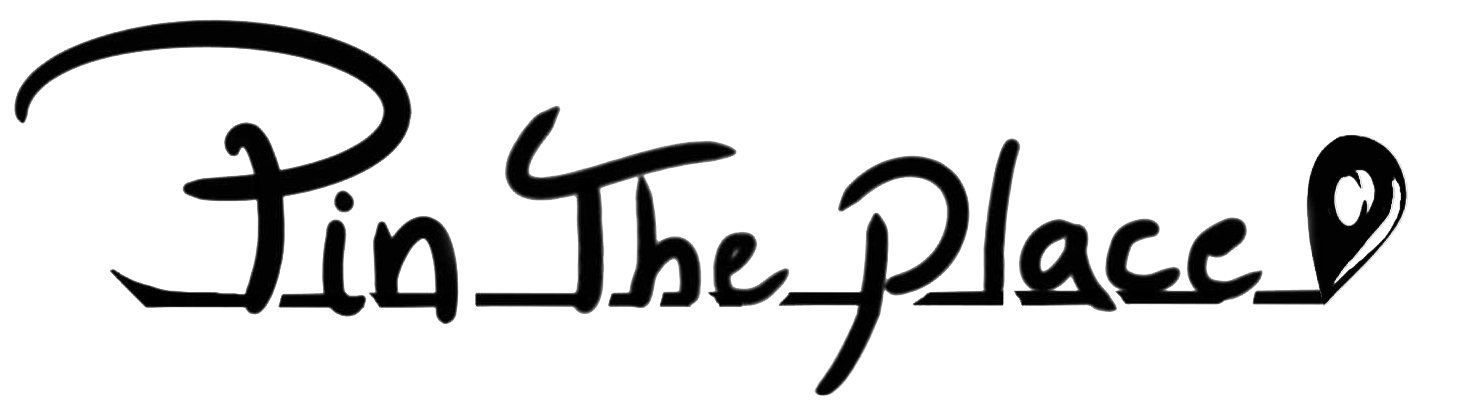 Pin The place